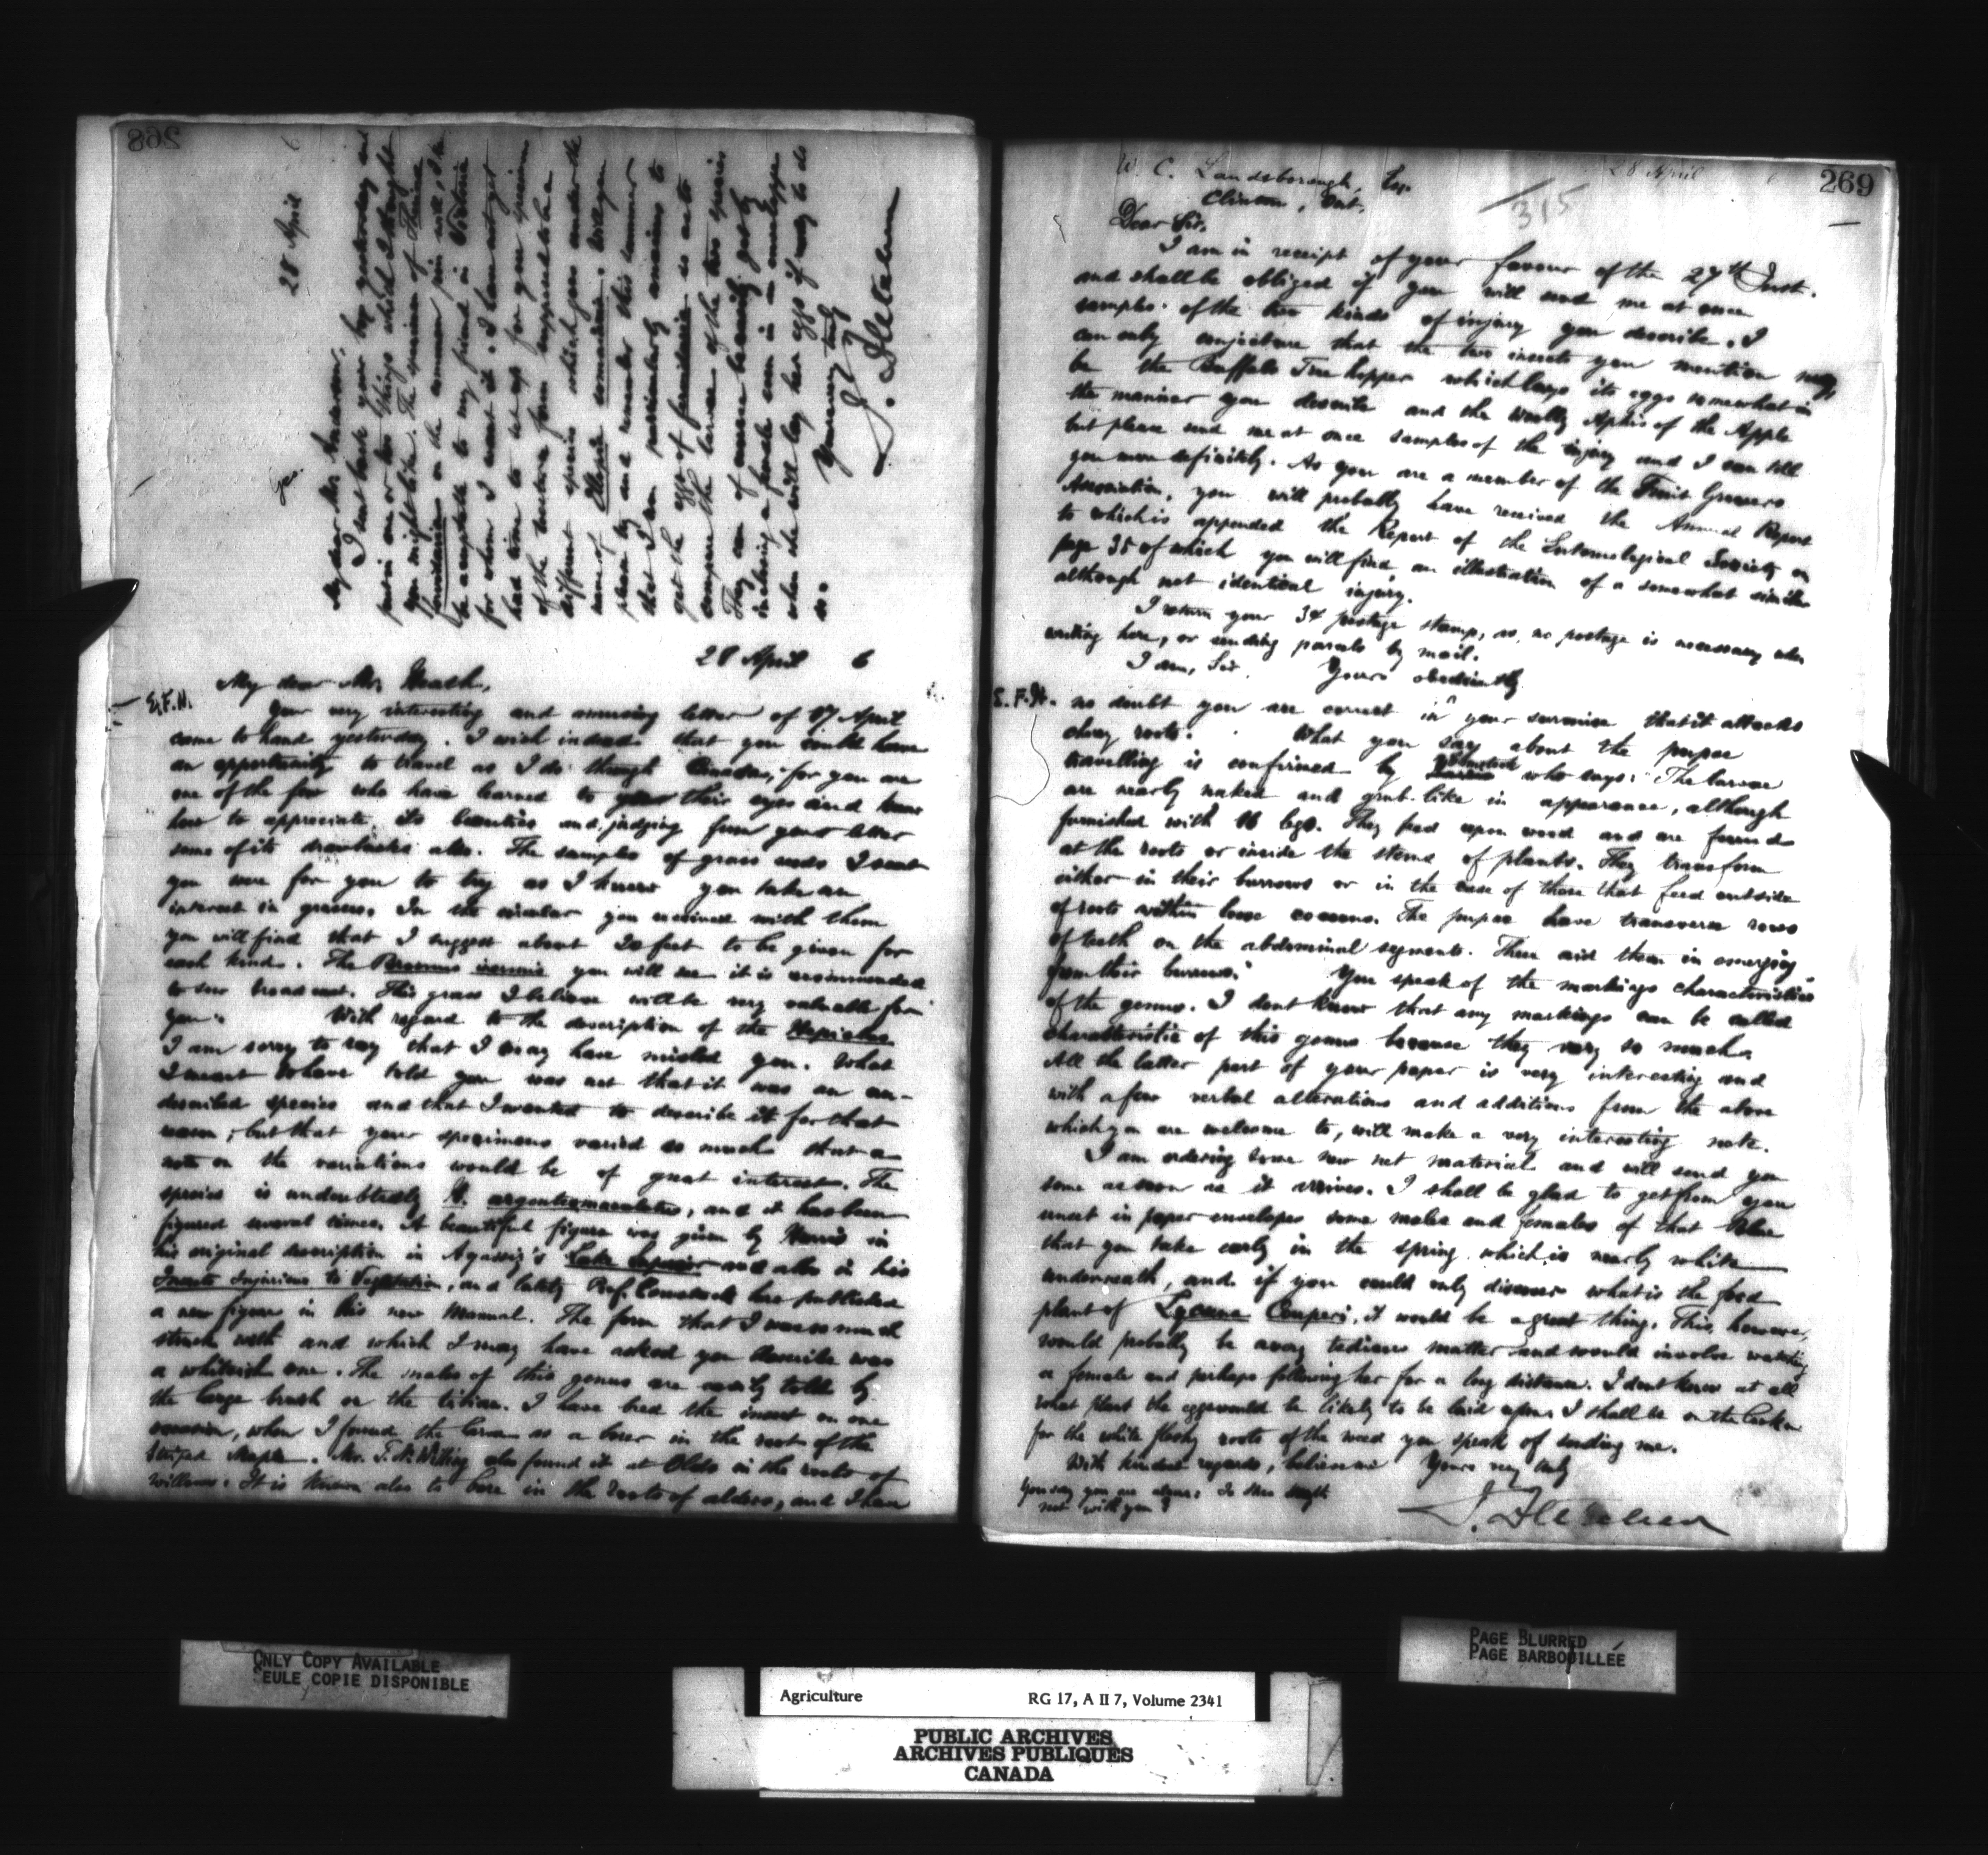 268
28 April 6
Geo.
My dear Mr.
I sent back your box yesterday and
put in one or two things which I thought
you might like. The specimen of Thecla
on the common pin will, I
be acceptable to my friend in Victoria
for whom I want it. I have not yet
had time to set up for you specimens
of the
different species which you under the
name of
please try and remember this summer
that I am particularly anxious to
get the eggs of so as to
compare the larvae of the two species
They can of course be easily got by
inclosing a female even in an envelope
when she will lay her eggs if may to do
so.
Yours very truly
J. Fletcher
28 April 6
My dear Mr. Heath,
E.F.H.
Your very interesting and amusing letter of 17 April
came to hand yesterday. I wish indeed that you could have
an opportunity to travel as I do through Canada, for you are
one of the few who have learned to their eyes and know
how to appreciate its beauties and, judging from your letter
some of its drawbacks also. The samples of grass seeds I sent
you were for you to try as I know you take an
interest in grasses. In the circular you received with them
you will find that I suggest about 20 feet to be given for
each kind. The Bromus inermis you will see it is recommended
to sow broadcast. This grass I believe will be very valuable for
you. With regard to the description of the Hepialus
I am sorry to say that I may have misled you. What
I meant to have told you was not that it was an un-
described species and that I wanted to describe it for that
reason, but that your specimens varied so much that a
note on the variations would be of great interest. The
species is undoubtedly H. argenteomaculatus, and it has been
figured several times. A beautiful figure was given by Harris in
his original description in Agassiz's Lake Superior and also in his
Insects Injurious to Vegetation, and lately Prof. Comstock has published
a new figure in his new Manual. The form that I was so much
struck with and which I may have asked you describe was
a whiteish one. The males of this genus are easily told by
the large brush on the tibiae. I have bred the insect on one
occasion, when I found the larva as a borer in the root of the
Striped Maple. Mr. T. N. Willing also found it at Olds in the roots of
willows. It is known also to bore in the roots of alders, and I have
269
28 April 6
315
W. C. Landsborough, Esq.
Clinton, Ont.
Dear Sir,
I am in receipt of your favour of the 27th Inst.
and shall be obliged if you will send me at once
samples of the two kinds of injury you describe. I
can only conjecture that the two insects you mention may
be the Buffalo Tree hopper which lays its eggs somewhat in
the manner you describe and the Woolly Aphis of the Apple
but please send me at once samples of the injury and I can tell
you more definitely. As you are a member of the Fruit Growers
Association, you will probably have received the Annual Report
to which is appended the Report of the Entomological Society on
page 35 of which you will find an illustration of a somewhat similar
although not identical injury.
I return your 3¢ postage stamp, as no postage is necessary when
writing here, or sending parcels by mail.
I am, Sir, Yours obediently
E.F.H. no doubt you are correct in your surmise that it attacks
roots. What you say about the pupae
travelling is confirmed by Comstock who says: "The larvae
are nearly naked and grub-like in appearance, although
furnished with 16 legs. They feed upon wood and are found
at the roots or inside the stems of plants. They transform
either in their burrows or in the case of those that feed outside
of roots within loose cocoons. The pupae have transverse rows
of teeth on the abdominal segments. These aid them in emerging
from their burrows." You speak of the markings characteristic
of the genus. I dont know that any markings can be called
characteristic of this genus because they vary so much.
All the latter part of your paper is very interesting and
with a few verbal alterations and additions from the above
which you are welcome to, will make a very interesting note.
I am ordering some new net material and will send you
some as soon as it arrives. I shall be glad to get from you
unset in paper envelopes some males and females of that Blue
that you take early in the spring which is nearly white
underneath, and if you could only discover what is the food
plant of Lycaena Couperi, it would be a great thing. This, however,
would probably be a very tedious matter and would involve watching
a female and perhaps following her for a long distance. I dont know at all
what plant the eggs would be likely to be laid upon. I shall be on the lookout
for the white fleshy roots of the weed you speak of sending me.
With kindest regards, believe me Yours very truly
You say you are alone: Is
not with you?
J. Fletcher
ONLY COPY AVAILABLE
SEULE COPIE DISPONIBLE
PAGE BLURRED
PAGE BARBOUILLÉE
Agriculture RG 17, A II 7, Volume 2341
PUBLIC ARCHIVES
ARCHIVES PUBLIQUES
CANADA